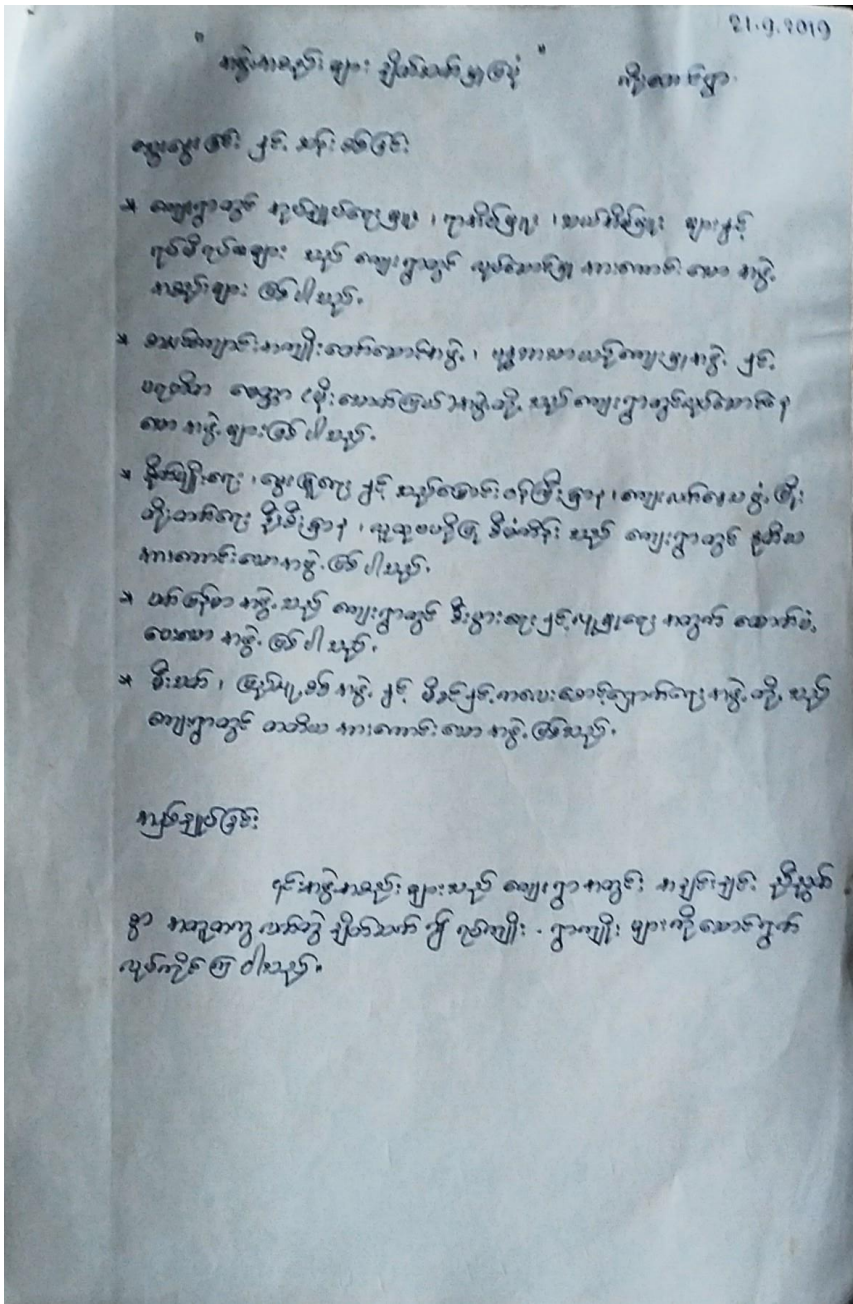 21.9.2019
" အဖွဲ့အစည်း များ ချိတ်ဆက်မှုပြပုံ "
ဆွေးနွေးခြင်း နှင့် သုံးသပ်ခြင်း
* ကျေးရွာတွင် အုပ်ချုပ်ရေးမှူး ၊ ရာအိမ်မှူး ၊ ဆယ်အိမ်မှူး များနှင့်
ရပ်မိရပ်ဖများ သည် ကျေးရွာတွင် လုပ်ဆောင်မှု အားကောင်း သော အဖွဲ့
အစည်းများ ဖြစ်ပါသည်။
* စာသင်ကျောင်းအကျိုးတော်ဆောင်အဖွဲ့ ၊ ကျန်းမာရေးအဖွဲ့ နှင့်
သော အဖွဲ့ များဖြစ်ပါသည်။
* စိုက်ပျိုးရေး ၊ မွေးမြူရေး နှင့် ဆည်မြောင်း ဝန်ကြီးဌာန ၊ ကျေးလက်ဒေသ ဖွံ့ဖြိုး
တိုးတက်ရေး ဦးစီးဌာန ၊ လူထုဗဟိုပြု စီမံကိန်း သည် ကျေးရွာတွင် ဒုတိယ
အားကောင်းသောအဖွဲ့ ဖြစ်ပါသည်။
* မက်မြန်မာ အဖွဲ့ သည် ကျေးရွာတွင် စီးပွားရေး နှင့်လူမှုရေး အတွက် ထောက်ပံ့
ပေးသော အဖွဲ့ ဖြစ်ပါသည်။
* မီးသတ် ၊ ပြည်သူ့စစ် အဖွဲ့ နှင့် မိခင်နှင့်ကလေးစောင့်ရှောက်ရေးအဖွဲ့ တို့ သည်
ကျေးရွာတွင် တတိယ အားကောင်းသော အဖွဲ့ ဖြစ်သည်။
အနှစ်ချုပ်ခြင်း
၎င်းအဖွဲ့အစည်း များသည် ကျေးရွာ အတွင်း အချင်းချင်း ညီညွတ်
စွာ အတူတကွ လက်တွဲ ချိတ်ဆက် ၍ ရပ်ကျိုး - ရွာကျိုး များကို ဆောင်ရွက်
လုပ်ကိုင် ကြ ပါသည်။